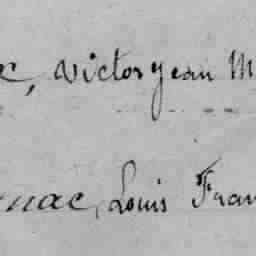 , Victor Jean M
nac, Louis Fran